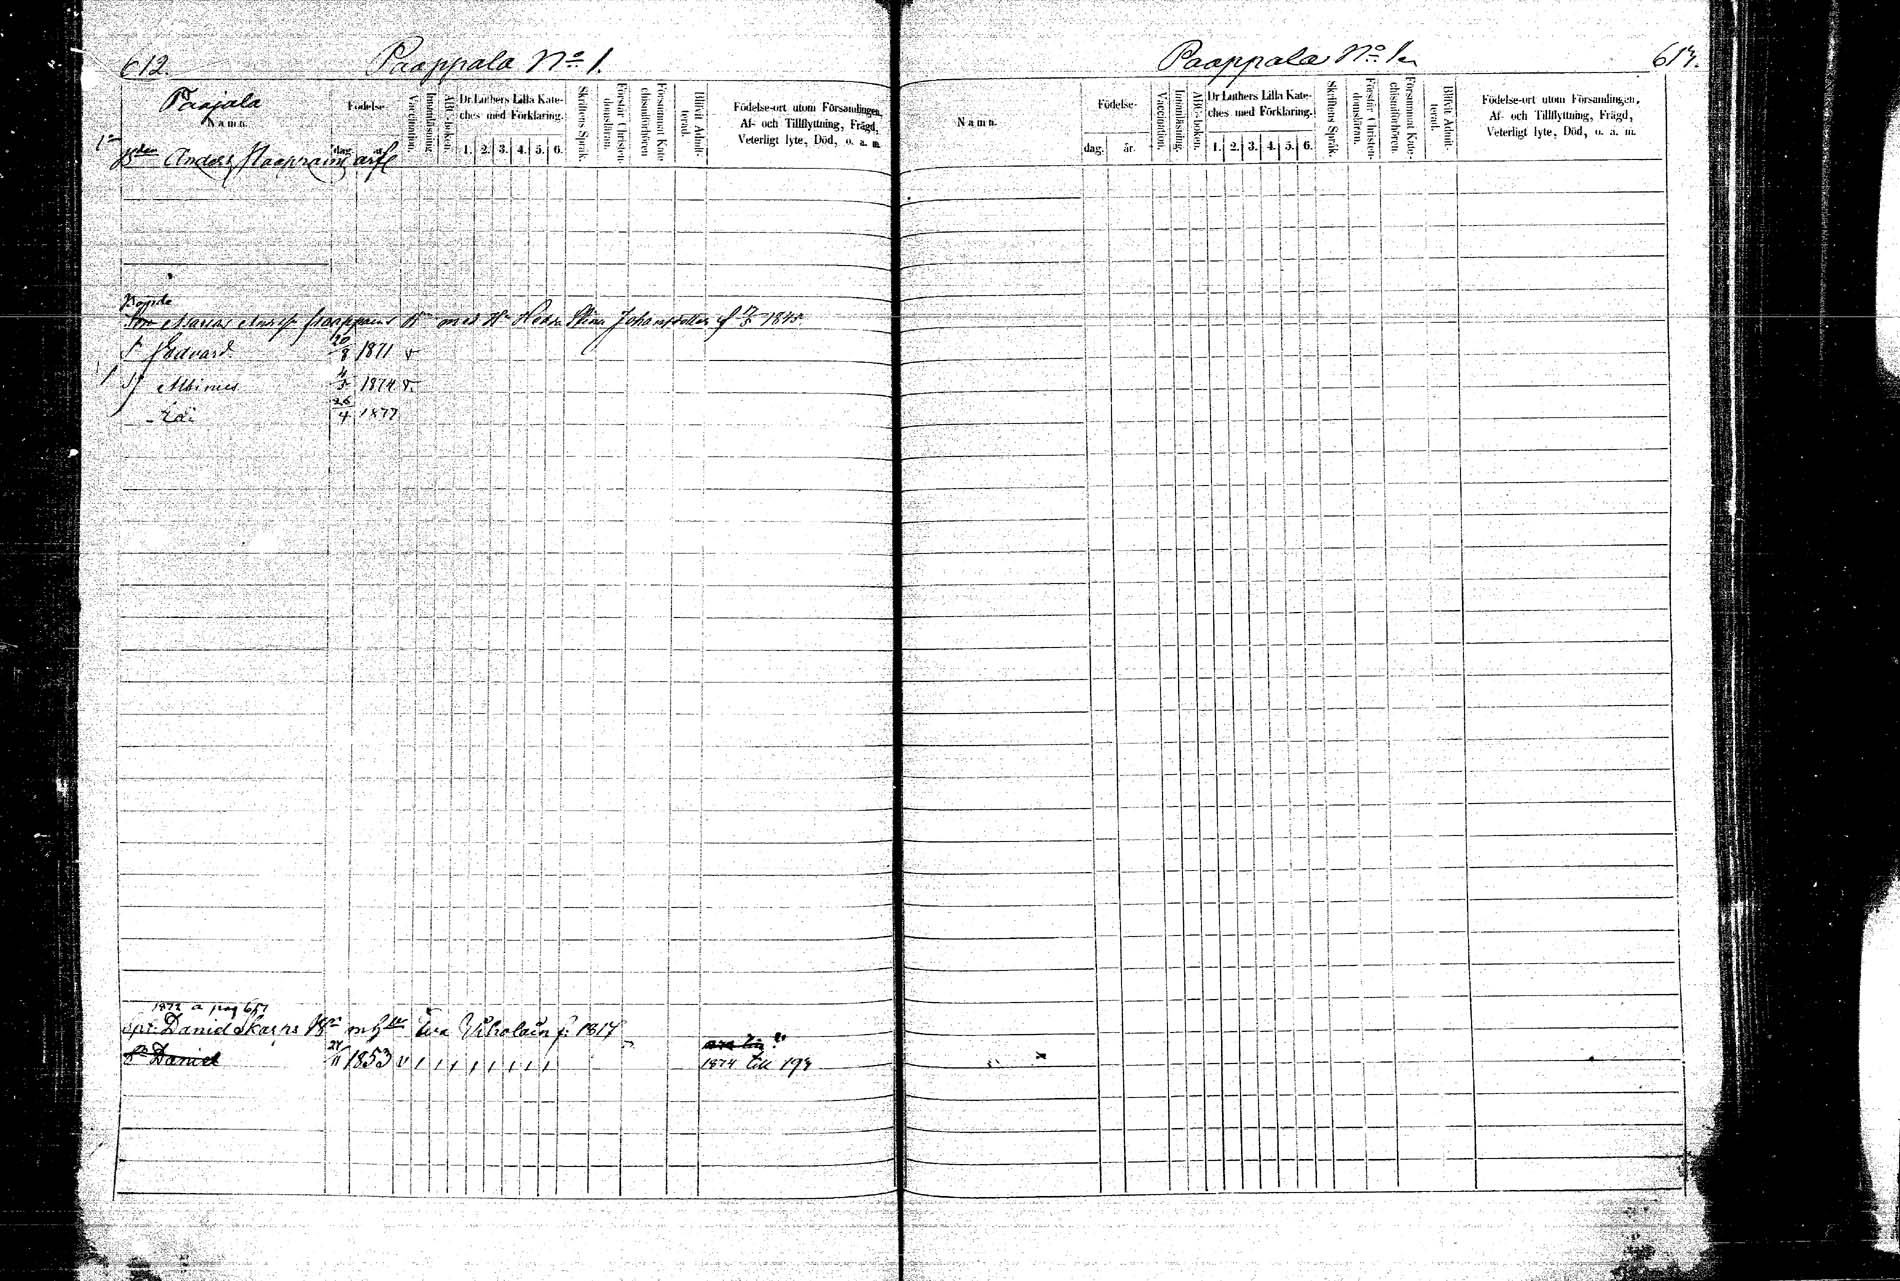 612.
Paappala No 1.
Paajala
Namn.
Födelse-
dag.
år.
Vaccination.
Innanläsning.
ABC-boken.
Dr Luthers Lilla Kate-
ches med Förklaring.
1. 2. 3. 4. 5. 6.
Skriftens Språk.
Förstår Christen-
domsläran.
Försummat Kate-
chismiförhören
Blifvit Admit-
terad.
Födelse-ort utom Församlingen,
Af- och Tillflyttning, Frägd,
Veterligt lyte, Död, o. a. m.
Anders Paappains arfl
Bonde
med Hedda Stina Johansdotter f 1845
Edvard 20/8 1871 v
Albinus 4/5 1874 v.
26/4 1877
1872 a pag 657
Daniel Skarps Eva f: 1817
Daniel 24/11 1853 v
1874 till 193
Paappala No 1
617.
Namn.
Födelse-
dag. år.
Vaccination.
Innanläsning.
ABC-boken.
Dr Luthers Lilla Kate-
ches med Förklaring.
1. 2. 3. 4. 5. 6.
Skriftens Språk.
Förstår Christen-
domsläran.
Försummat Kate-
chismiförhören.
Blifvit Admit-
terad.
Födelse-ort utom Församlingen,
Af- och Tillflyttning, Frägd,
Veterligt lyte, Död, o. a. m.